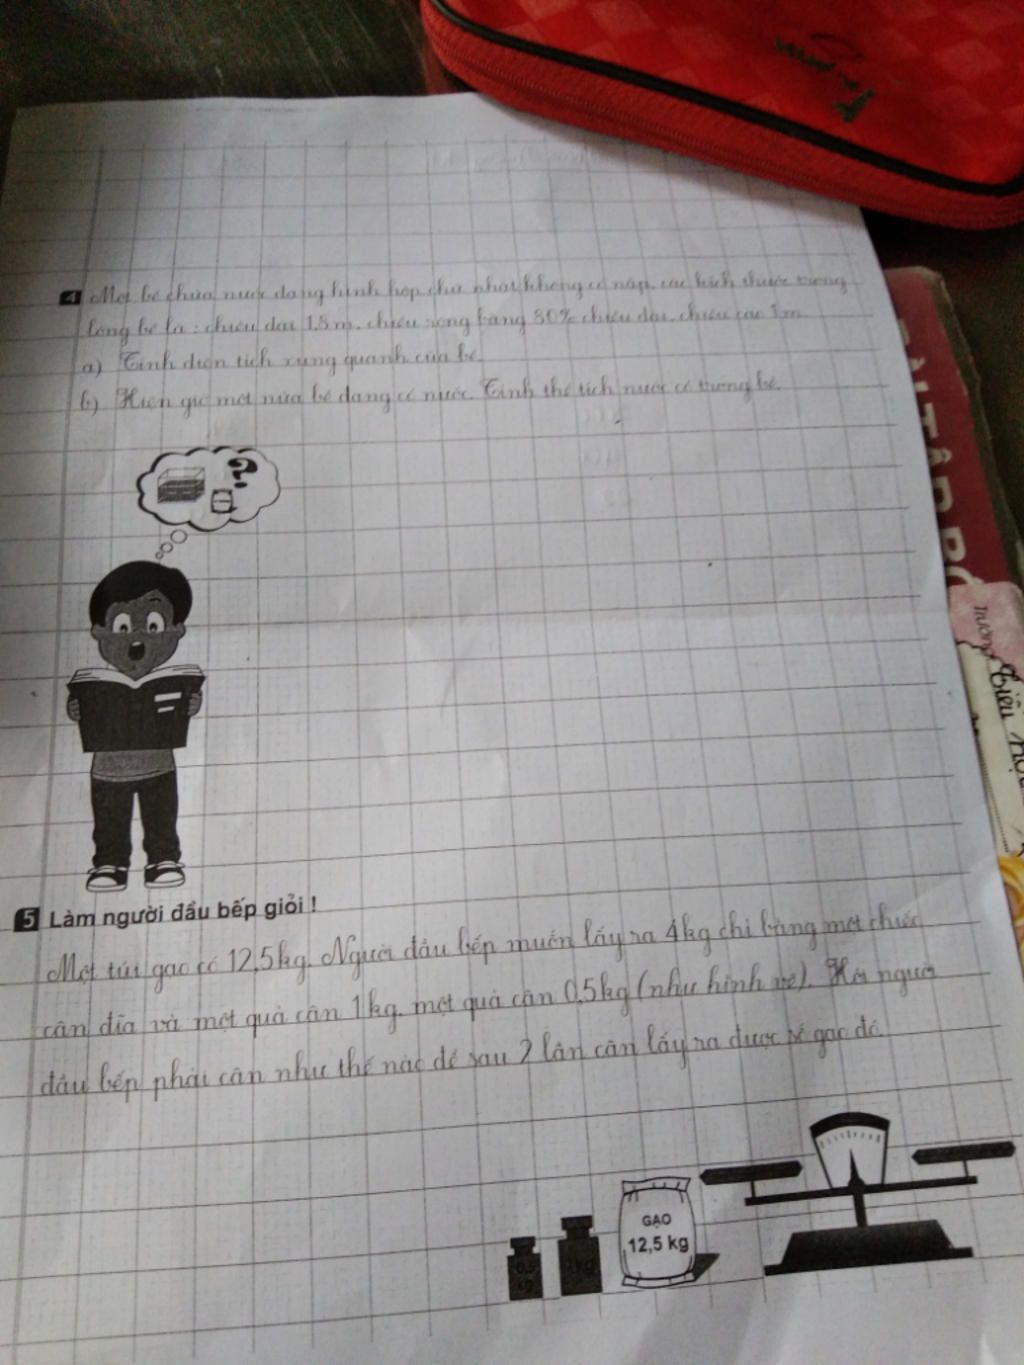 4 Một bể chứa nước dạng hình hộp chữ nhật không có nắp, các kích thước trong
lòng bể là: chiều dài 1,8m, chiều rộng bằng 80% chiều dài, chiều cao 1m.
a) Tính diện tích xung quanh của bể.
b) Hiện giờ một nửa bể đang có nước. Tính thể tích nước có trong bể.
?
5 Làm người đầu bếp giỏi !
Một túi gạo có 12,5kg. Người đầu bếp muốn lấy ra 4kg chỉ bằng một chiếc
cân đĩa và một quả cân 1kg, một quả cân 0,5kg (như hình vẽ). Hỏi người
đầu bếp phải cân như thế nào để sau 2 lần cân lấy ra được số gạo đó.
GẠO
12,5 kg
BÀI TẬP BỔ
Trường Tiểu